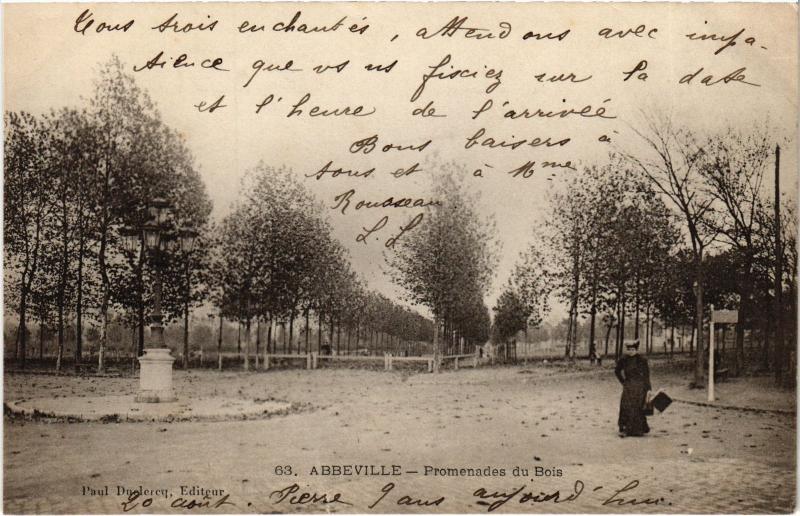 Tous trois enchantés, attendons avec impa-
tience que vs ns fixiez sur la date
et l'heure de l'arrivée
Bons baisers à
tous et à Mme
Rousseau
L. L.
63. ABBEVILLE — Promenades du Bois
Paul Duclercq, Editeur
20 août. Pierre 9 ans aujourd'hui.